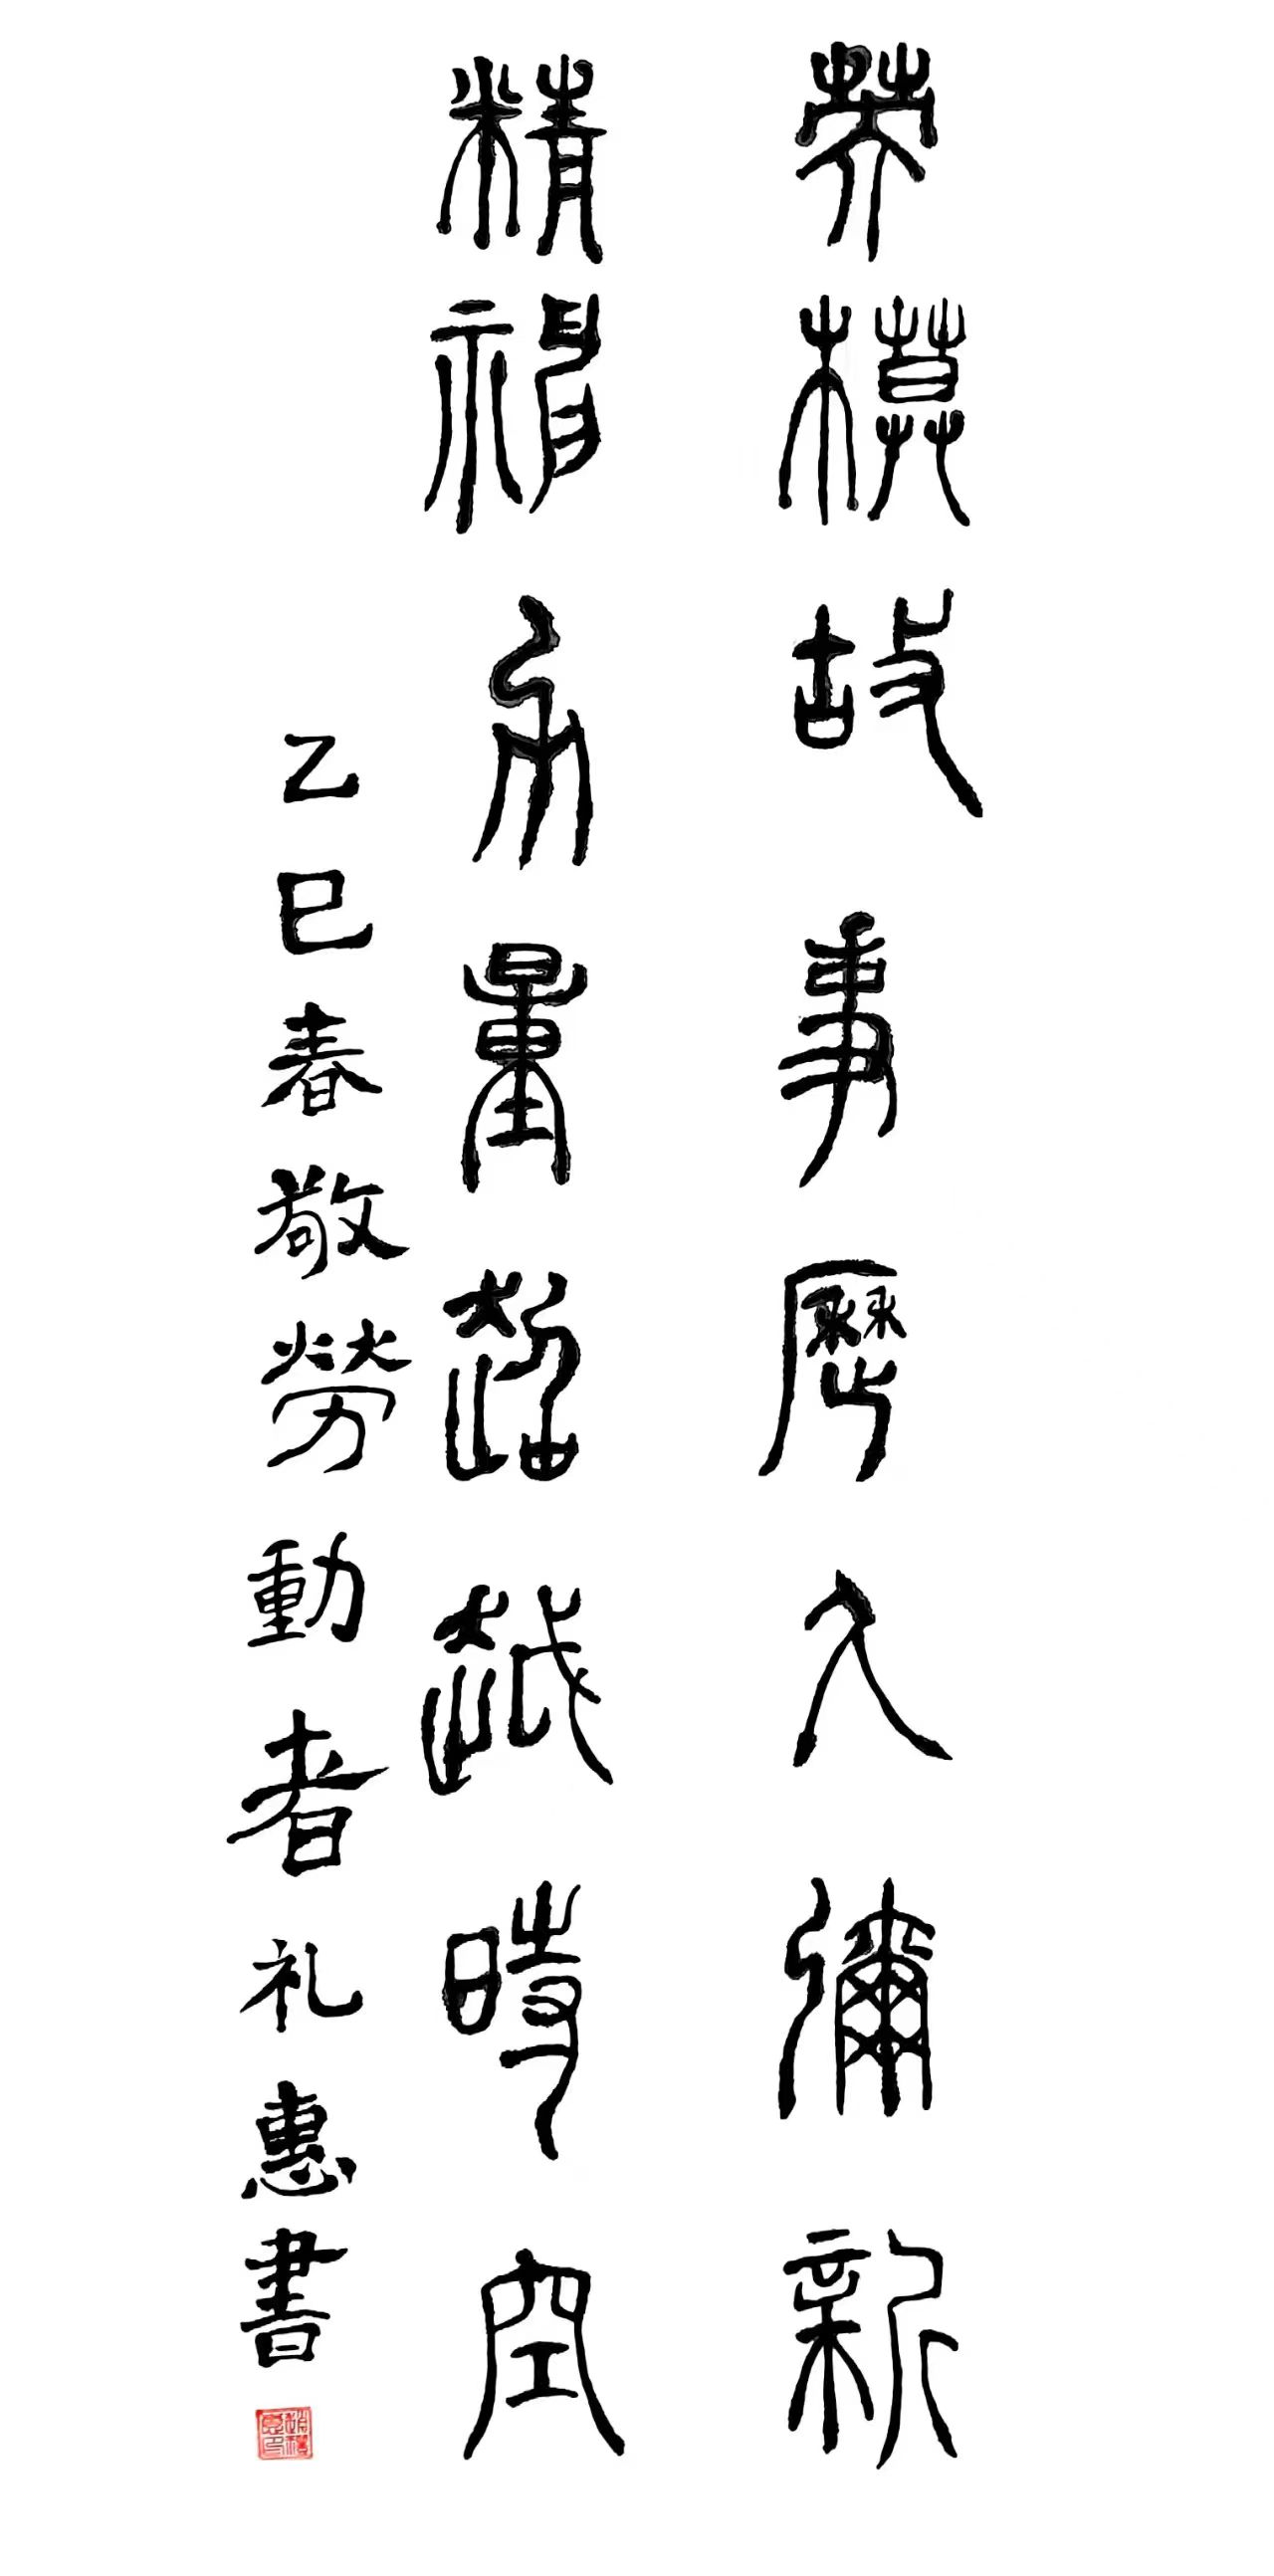 英模故事歷久彌新
精神力量超越時空
乙巳春敬勞動者礼惠書